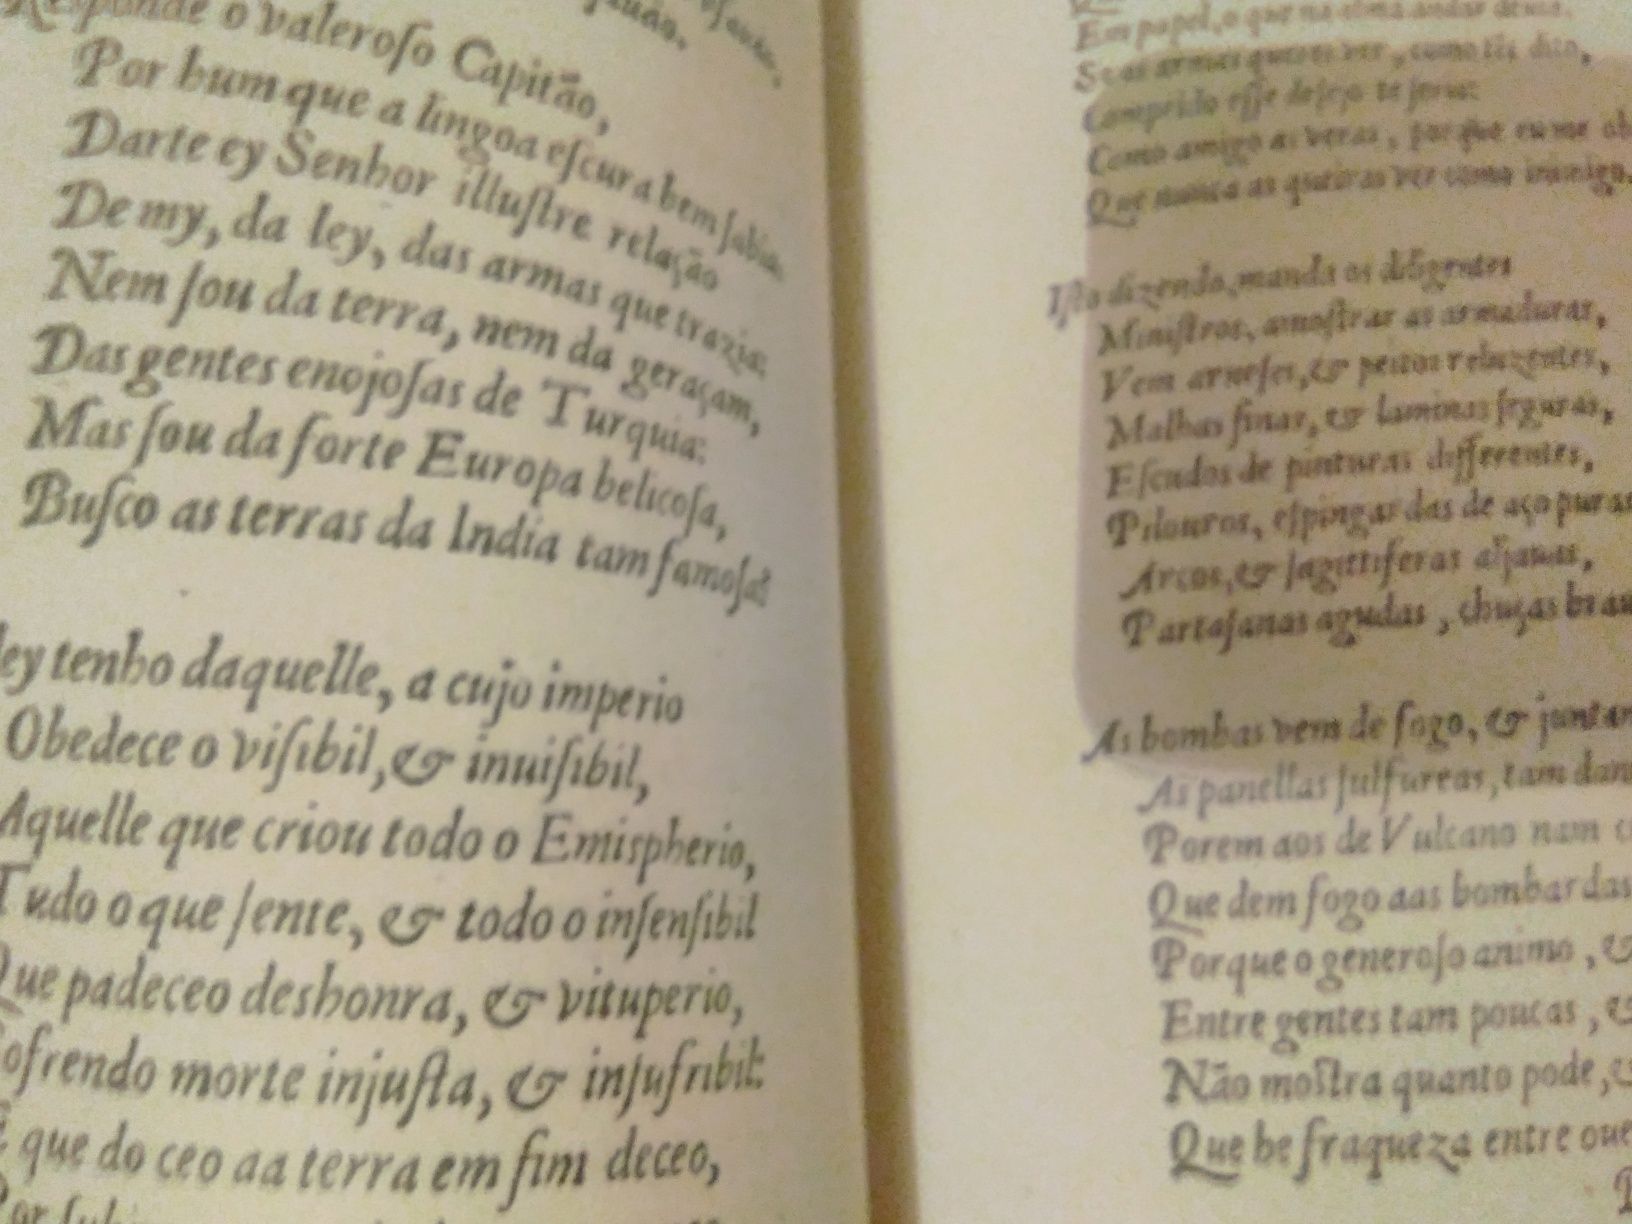 Responde o valeroſo Capitão,
Por hum que a lingoa eſcura bem ſabia.
Darte ey Senhor illuſtre relação
De my, da ley, das armas que trazia:
Nem ſou da terra, nem da geraçam,
Das gentes enojoſas de Turquia:
Mas ſou da forte Europa belicoſa,
Buſco as terras da India tam famoſa:
ley tenho daquelle, a cujo imperio
Obedece o viſibil, & inuiſibil,
Aquelle que criou todo o Emispherio,
Tudo o que ſente, & todo o inſenſibil
Que padeceo deshonra, & vituperio,
Sofrendo morte injuſta, & inſufribil:
E que do ceo aa terra em fim deceo,
Por
Em papel, o que na alma andar deuia.
Se as armas queres ver, como tẽs dito,
Comprido eſſe deſejo te ſeria:
Como amigo as veras, porque eu me
Que nunca as queiras ver como inimigo.
Iſto dizendo, manda os diligentes
Miniſtros, amoſtrar as armaduras,
Vem arneſes, & peitos reluzentes,
Malhas finas, & laminas ſeguras,
Eſcudos de pinturas differentes,
Pilouros, eſpingardas de aço puras
Arcos, & ſagittiferas aljauas,
Partaſanas agudas, chuças brau
As bombas vem de fogo, & juntam
As panellas ſulfureas, tam dan
Porem aos de Vulcano nam
Que dem fogo aas bombardas
Porque o generoſo animo, &
Entre gentes tam poucas, &
Não moſtra quanto pode, &
Que he fraqueza entre oue